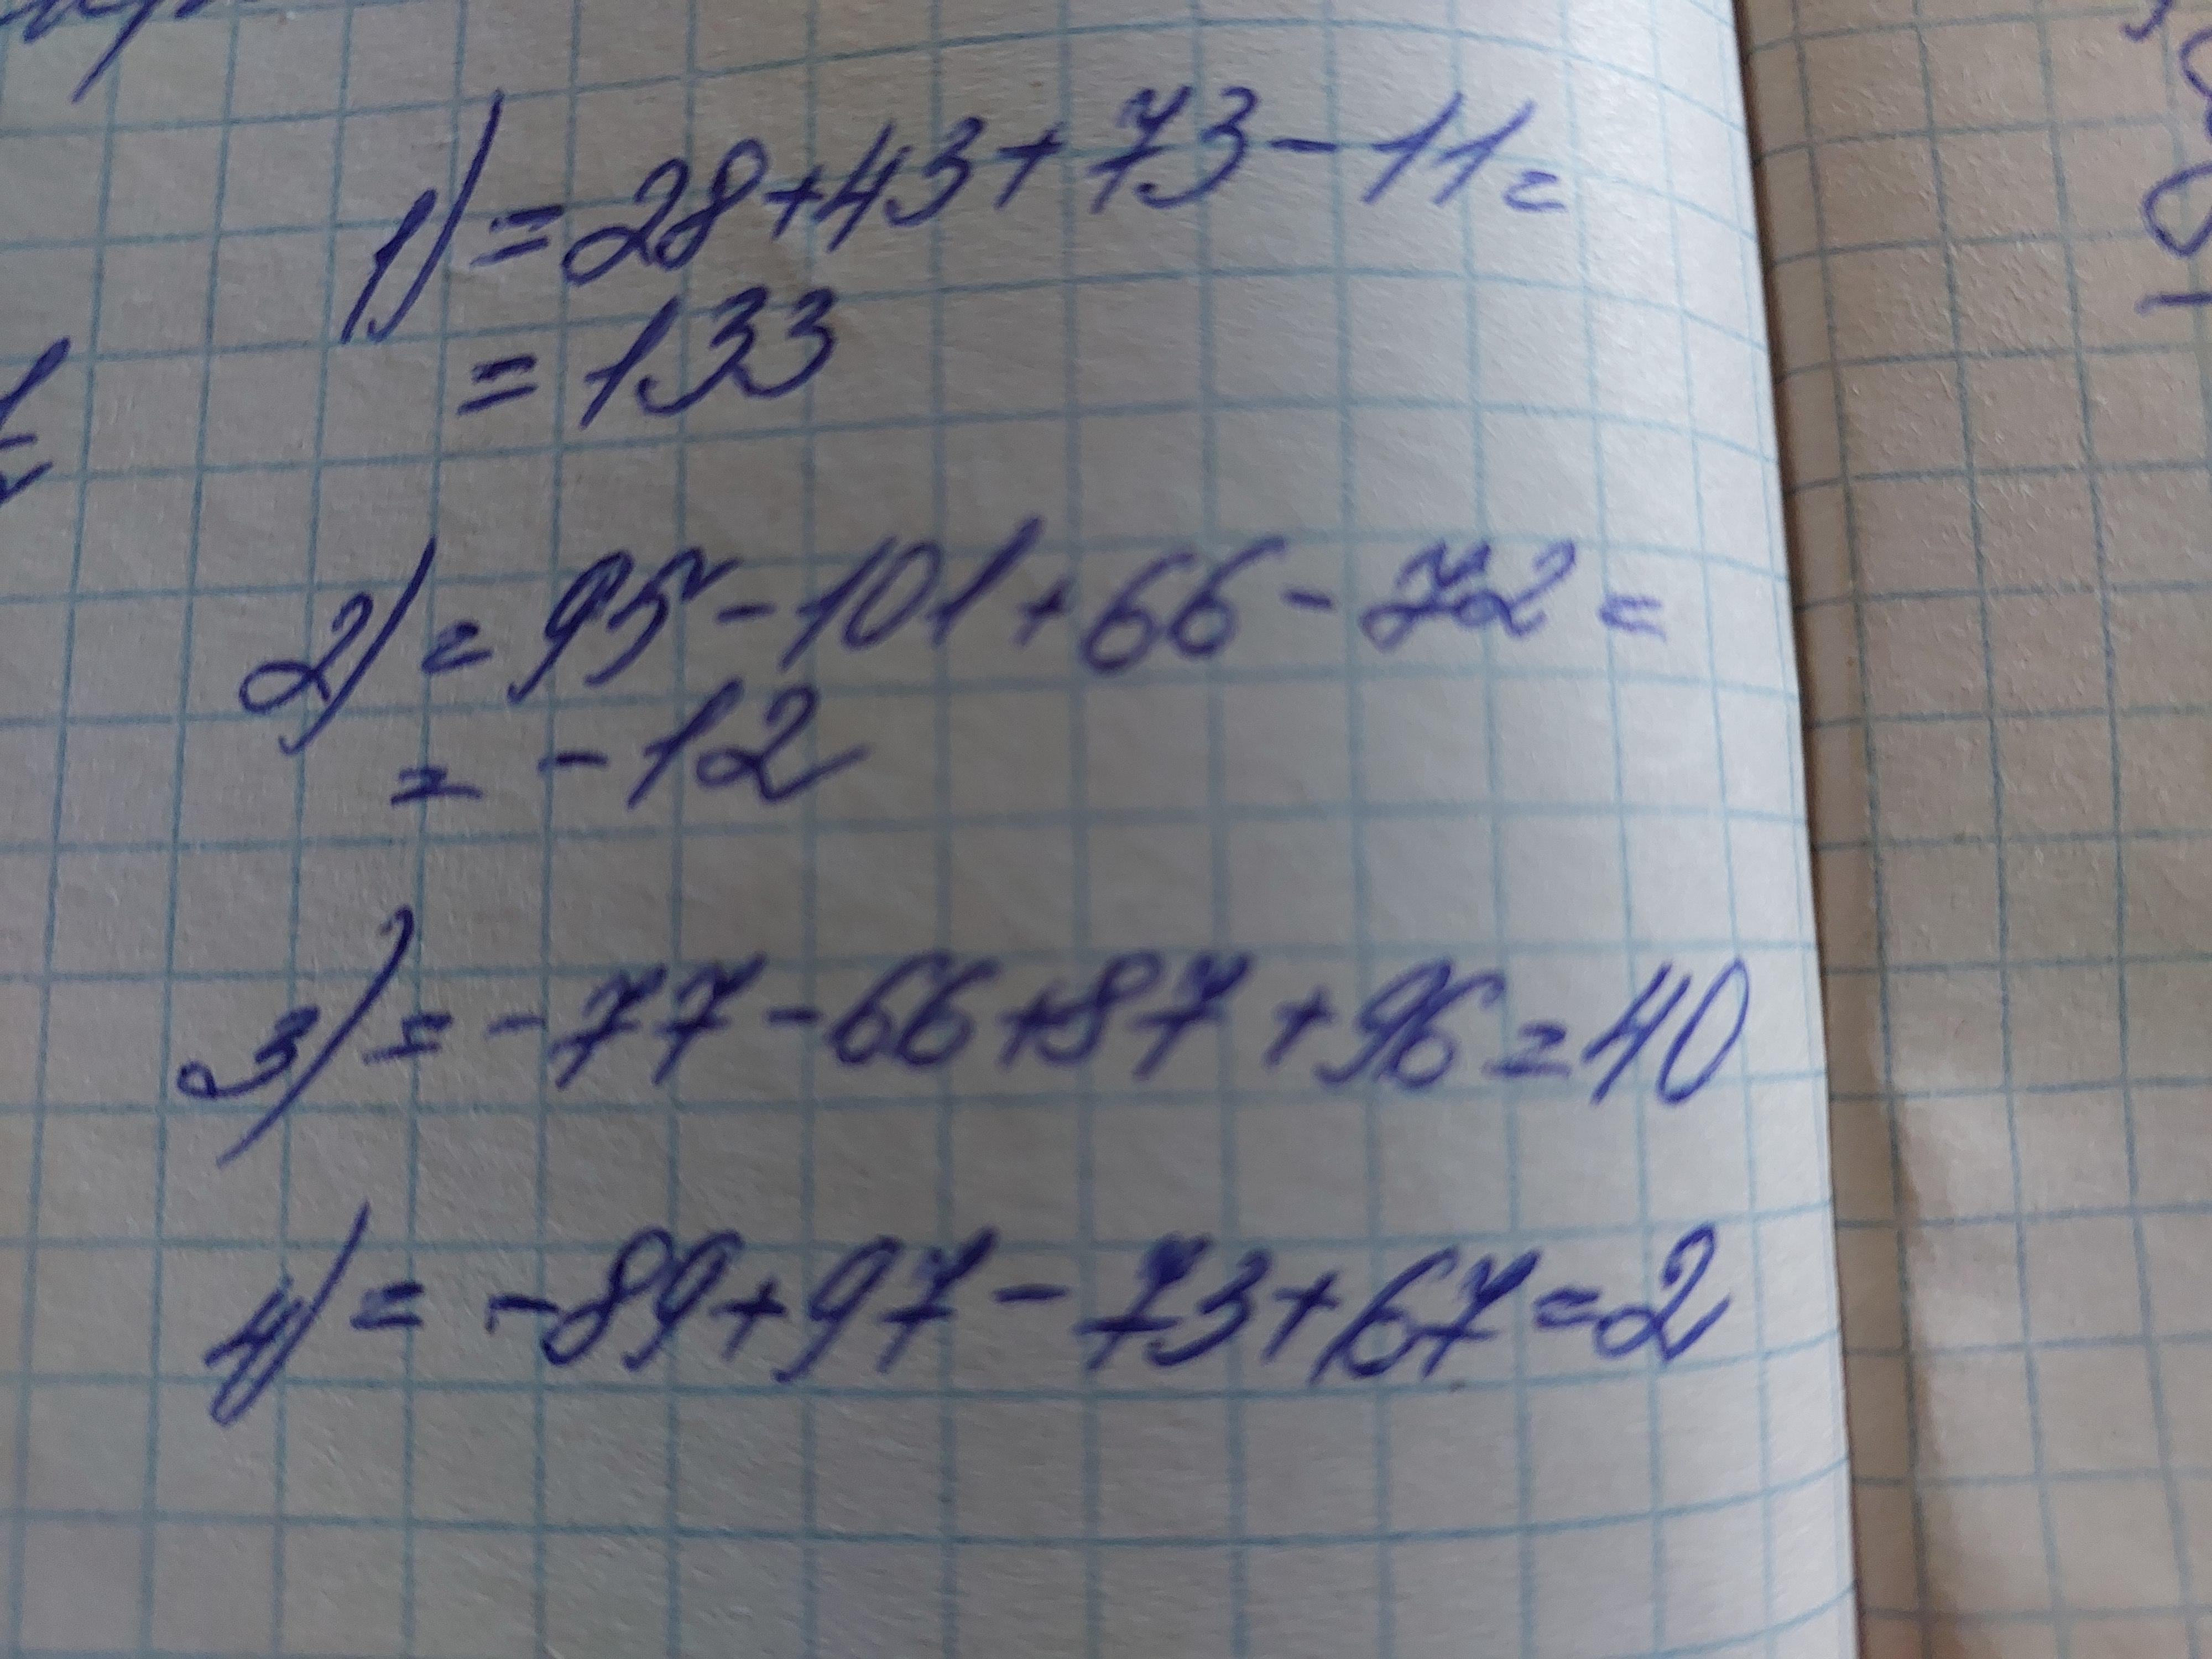 1) = 28 + 43 + 73 - 11 =
= 133
2) = 95 - 101 + 66 - 72 =
= - 12
3) = - 77 - 66 + 87 + 96 = 40
4) = - 89 + 97 - 73 + 67 = 2